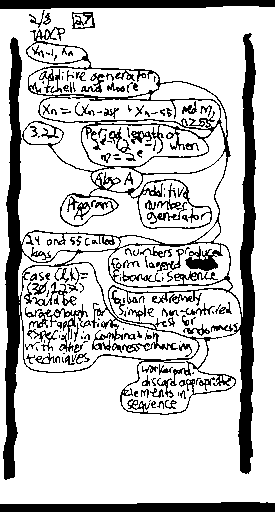 2/8 27
TAOCP
Xn-1, Xn
additive generator,
Mitchell and Moore
Xn = (Xn-24 + Xn-55) mod m,
n≥55
3.2.2
Period length of
when
m = 2^e
Algo A
Program
A
additive
number
generator
24 and 55 called
lags
numbers produced
form lagged
fibonacci sequence
case (l,k)=
should be
large enough for
most applications
especially in combination
with other randomness enhancing
techniques
extremely
simple non-contrived
test for
randomness
workaround:
discard appropriate
elements in
sequence